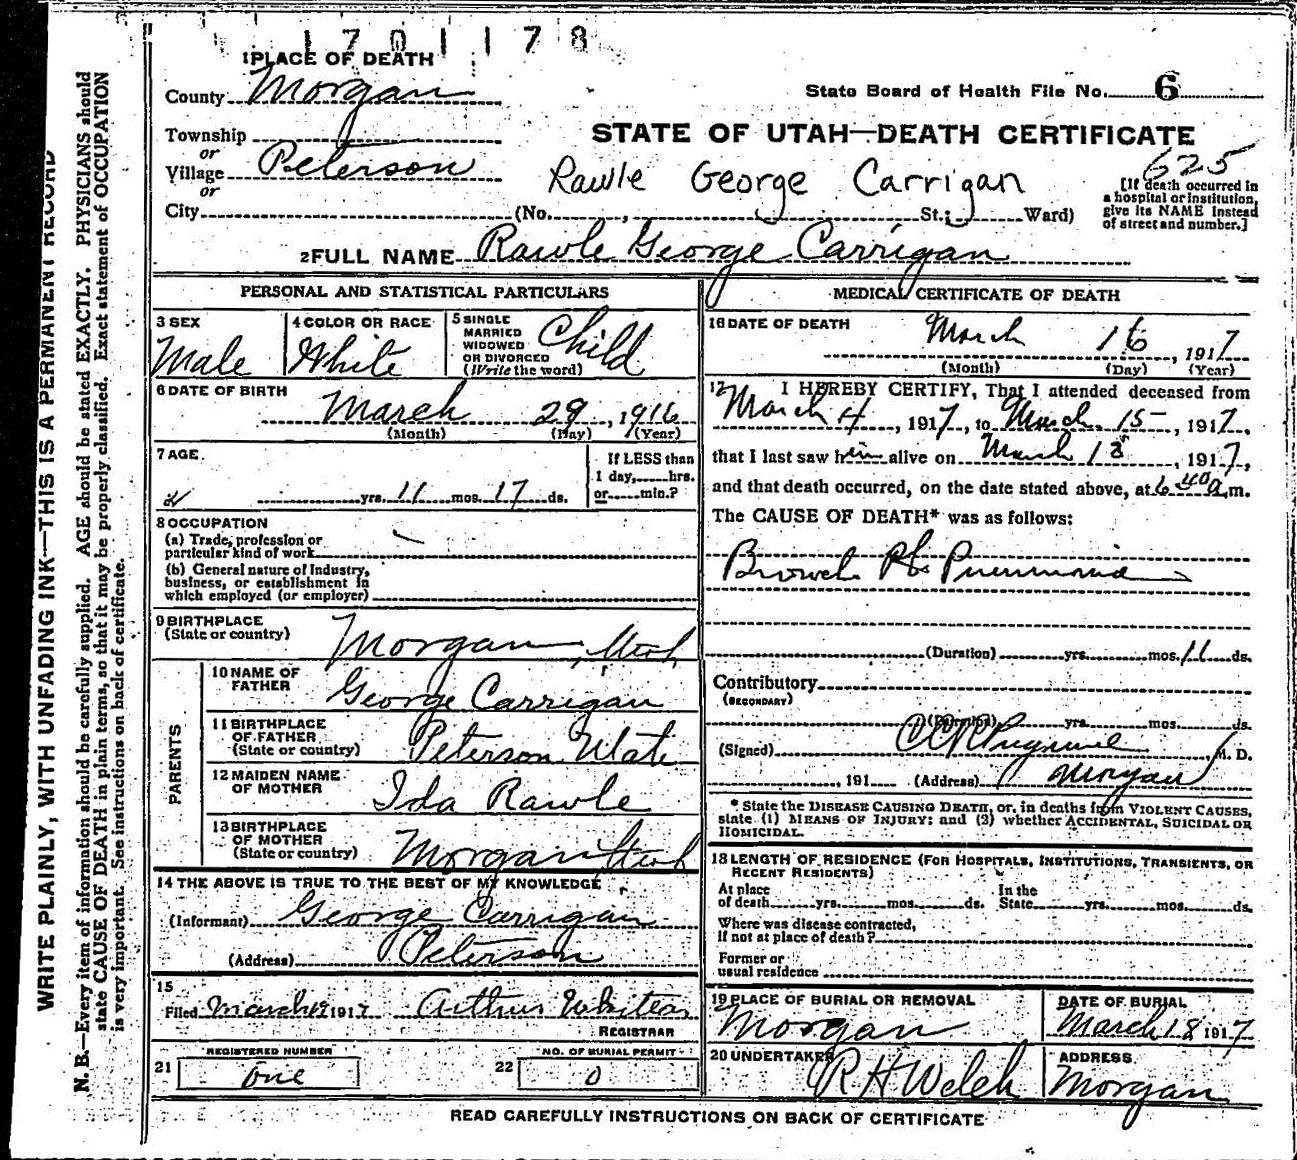 1701178
1 PLACE OF DEATH
County Morgan
State Board of Health File No. 6
STATE OF UTAH—DEATH CERTIFICATE
Township
or
Village Peterson
or
City (No. , St.; Ward)
Rawle George Carrigan
625
[If death occurred in
a hospital or institution,
give its NAME instead
of street and number.]
2 FULL NAME Rawle George Carrigan
PERSONAL AND STATISTICAL PARTICULARS
3 SEX
Male
4 COLOR OR RACE
White
5 SINGLE
MARRIED
WIDOWED
OR DIVORCED
(Write the word)
Child
6 DATE OF BIRTH
March 29, 1916
(Month) (Day) (Year)
7 AGE
yrs. 11 mos. 17 ds.
If LESS than
1 day, hrs.
or min.?
8 OCCUPATION
(a) Trade, profession or
particular kind of work
(b) General nature of Industry,
business, or establishment in
which employed (or employer)
9 BIRTHPLACE
(State or country)
Morgan, Utah
PARENTS
10 NAME OF
FATHER
George Carrigan
11 BIRTHPLACE
OF FATHER
(State or country)
Peterson
12 MAIDEN NAME
OF MOTHER
Ida Rawle
13 BIRTHPLACE
OF MOTHER
(State or country)
Morgan Utah
14 THE ABOVE IS TRUE TO THE BEST OF MY KNOWLEDGE
(Informant) George Carrigan
(Address) Peterson
15
Filed March 1917 Arthur
REGISTRAR
REGISTERED NUMBER
21 One
NO. OF BURIAL PERMIT
22 0
MEDICAL CERTIFICATE OF DEATH
16 DATE OF DEATH
March 16, 1917
(Month) (Day) (Year)
17 I HEREBY CERTIFY, That I attended deceased from
March 4, 1917, to March 15, 1917,
that I last saw him alive on March , 1917,
and that death occurred, on the date stated above, at 6 40 a.m.
The CAUSE OF DEATH* was as follows:
Pneumonia
(Duration) yrs. mos. 11 ds.
Contributory
(SECONDARY)
(Duration) yrs. mos. ds.
(Signed) , M. D.
, 191 (Address) Morgan
* State the DISEASE CAUSING DEATH, or, in deaths from VIOLENT CAUSES,
state (1) MEANS OF INJURY; and (2) whether ACCIDENTAL, SUICIDAL OR
HOMICIDAL.
18 LENGTH OF RESIDENCE (FOR HOSPITALS, INSTITUTIONS, TRANSIENTS, OR
RECENT RESIDENTS)
At place
of death yrs. mos. ds.
In the
State yrs. mos. ds.
Where was disease contracted,
if not at place of death?
Former or
usual residence
19 PLACE OF BURIAL OR REMOVAL
Morgan
DATE OF BURIAL
March 18 1917
20 UNDERTAKER
R H Welch
ADDRESS
Morgan
READ CAREFULLY INSTRUCTIONS ON BACK OF CERTIFICATE
WRITE PLAINLY, WITH UNFADING INK—THIS IS A PERMANENT RECORD
N. B.—Every item of information should be carefully supplied. AGE should be stated EXACTLY. PHYSICIANS should
state CAUSE OF DEATH in plain terms, so that it may be properly classified. Exact statement of OCCUPATION
is very important. See instructions on back of certificate.